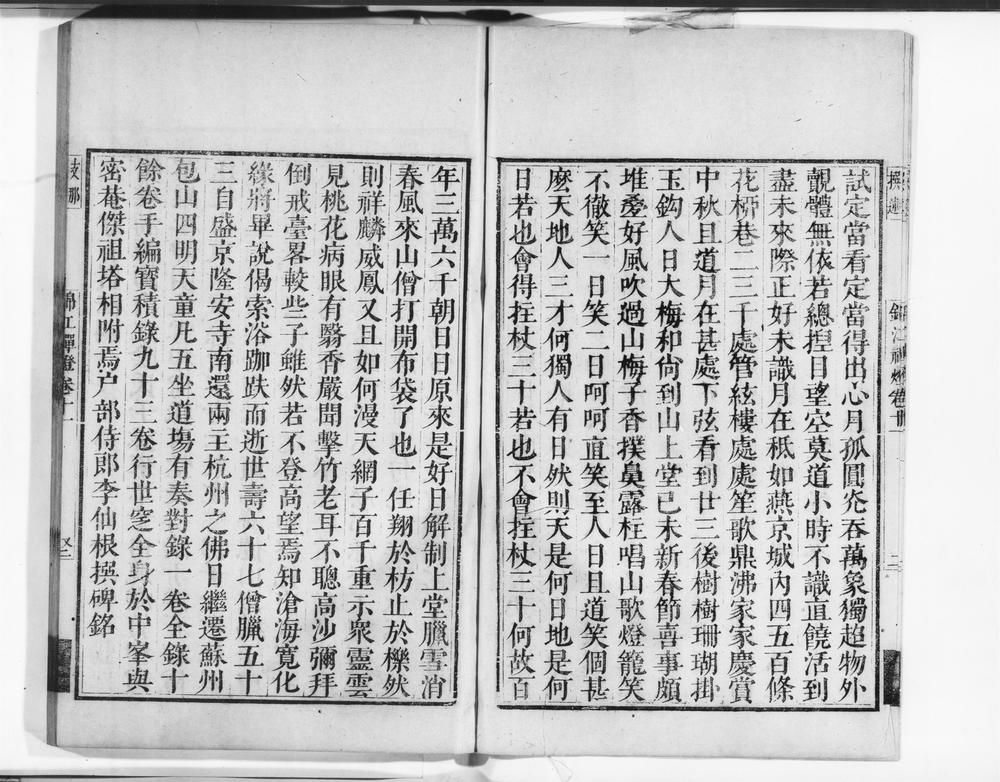 試定當看定當得出心月孤圓光吞萬象獨超物外
覿體無依若總揑目望空莫道小時不識直饒活到
盡未來際正好未識月在秪如燕京城內四五百條
花柳巷二三千處管絃樓處處笙歌鼎沸家家慶賞
中秋且道月在甚處下弦看到廿三後樹樹珊瑚掛
玉鈎人日大梅和尙到山上堂已未新春節喜事頗
堆㤅好風吹過山梅子香撲鼻露柱唱山歌燈籠笑
不徹笑一日笑二日呵呵直笑至人日且道笑個甚
麽天地人三才何獨人有日然則天是何日地是何
日若也會得拄杖三十若也不會拄杖三十何故百
年三萬六千朝日日原來是好日解制上堂臘雪消
春風來山僧打開布袋了也一任翔於枋止於櫟然
則祥麟威鳳又且如何漫天網子百千重示衆靈雲
見桃花病眼有翳香嚴聞擊竹老耳不聰高沙彌拜
倒戒臺畧較些子雖然若不登高望焉知滄海寛化
緣將畢說偈索浴跏趺而逝世壽六十七僧臘五十
三自盛京隆安寺南還兩王杭州之佛日繼遷蘇州
包山四明天童凡五坐道塲有奏對錄一卷全錄十
餘卷手編寶積錄九十三卷行世窆全身於中峯與
密菴傑祖塔相附焉户部侍郎李仙根撰碑銘
支那
錦江禪燈卷十一